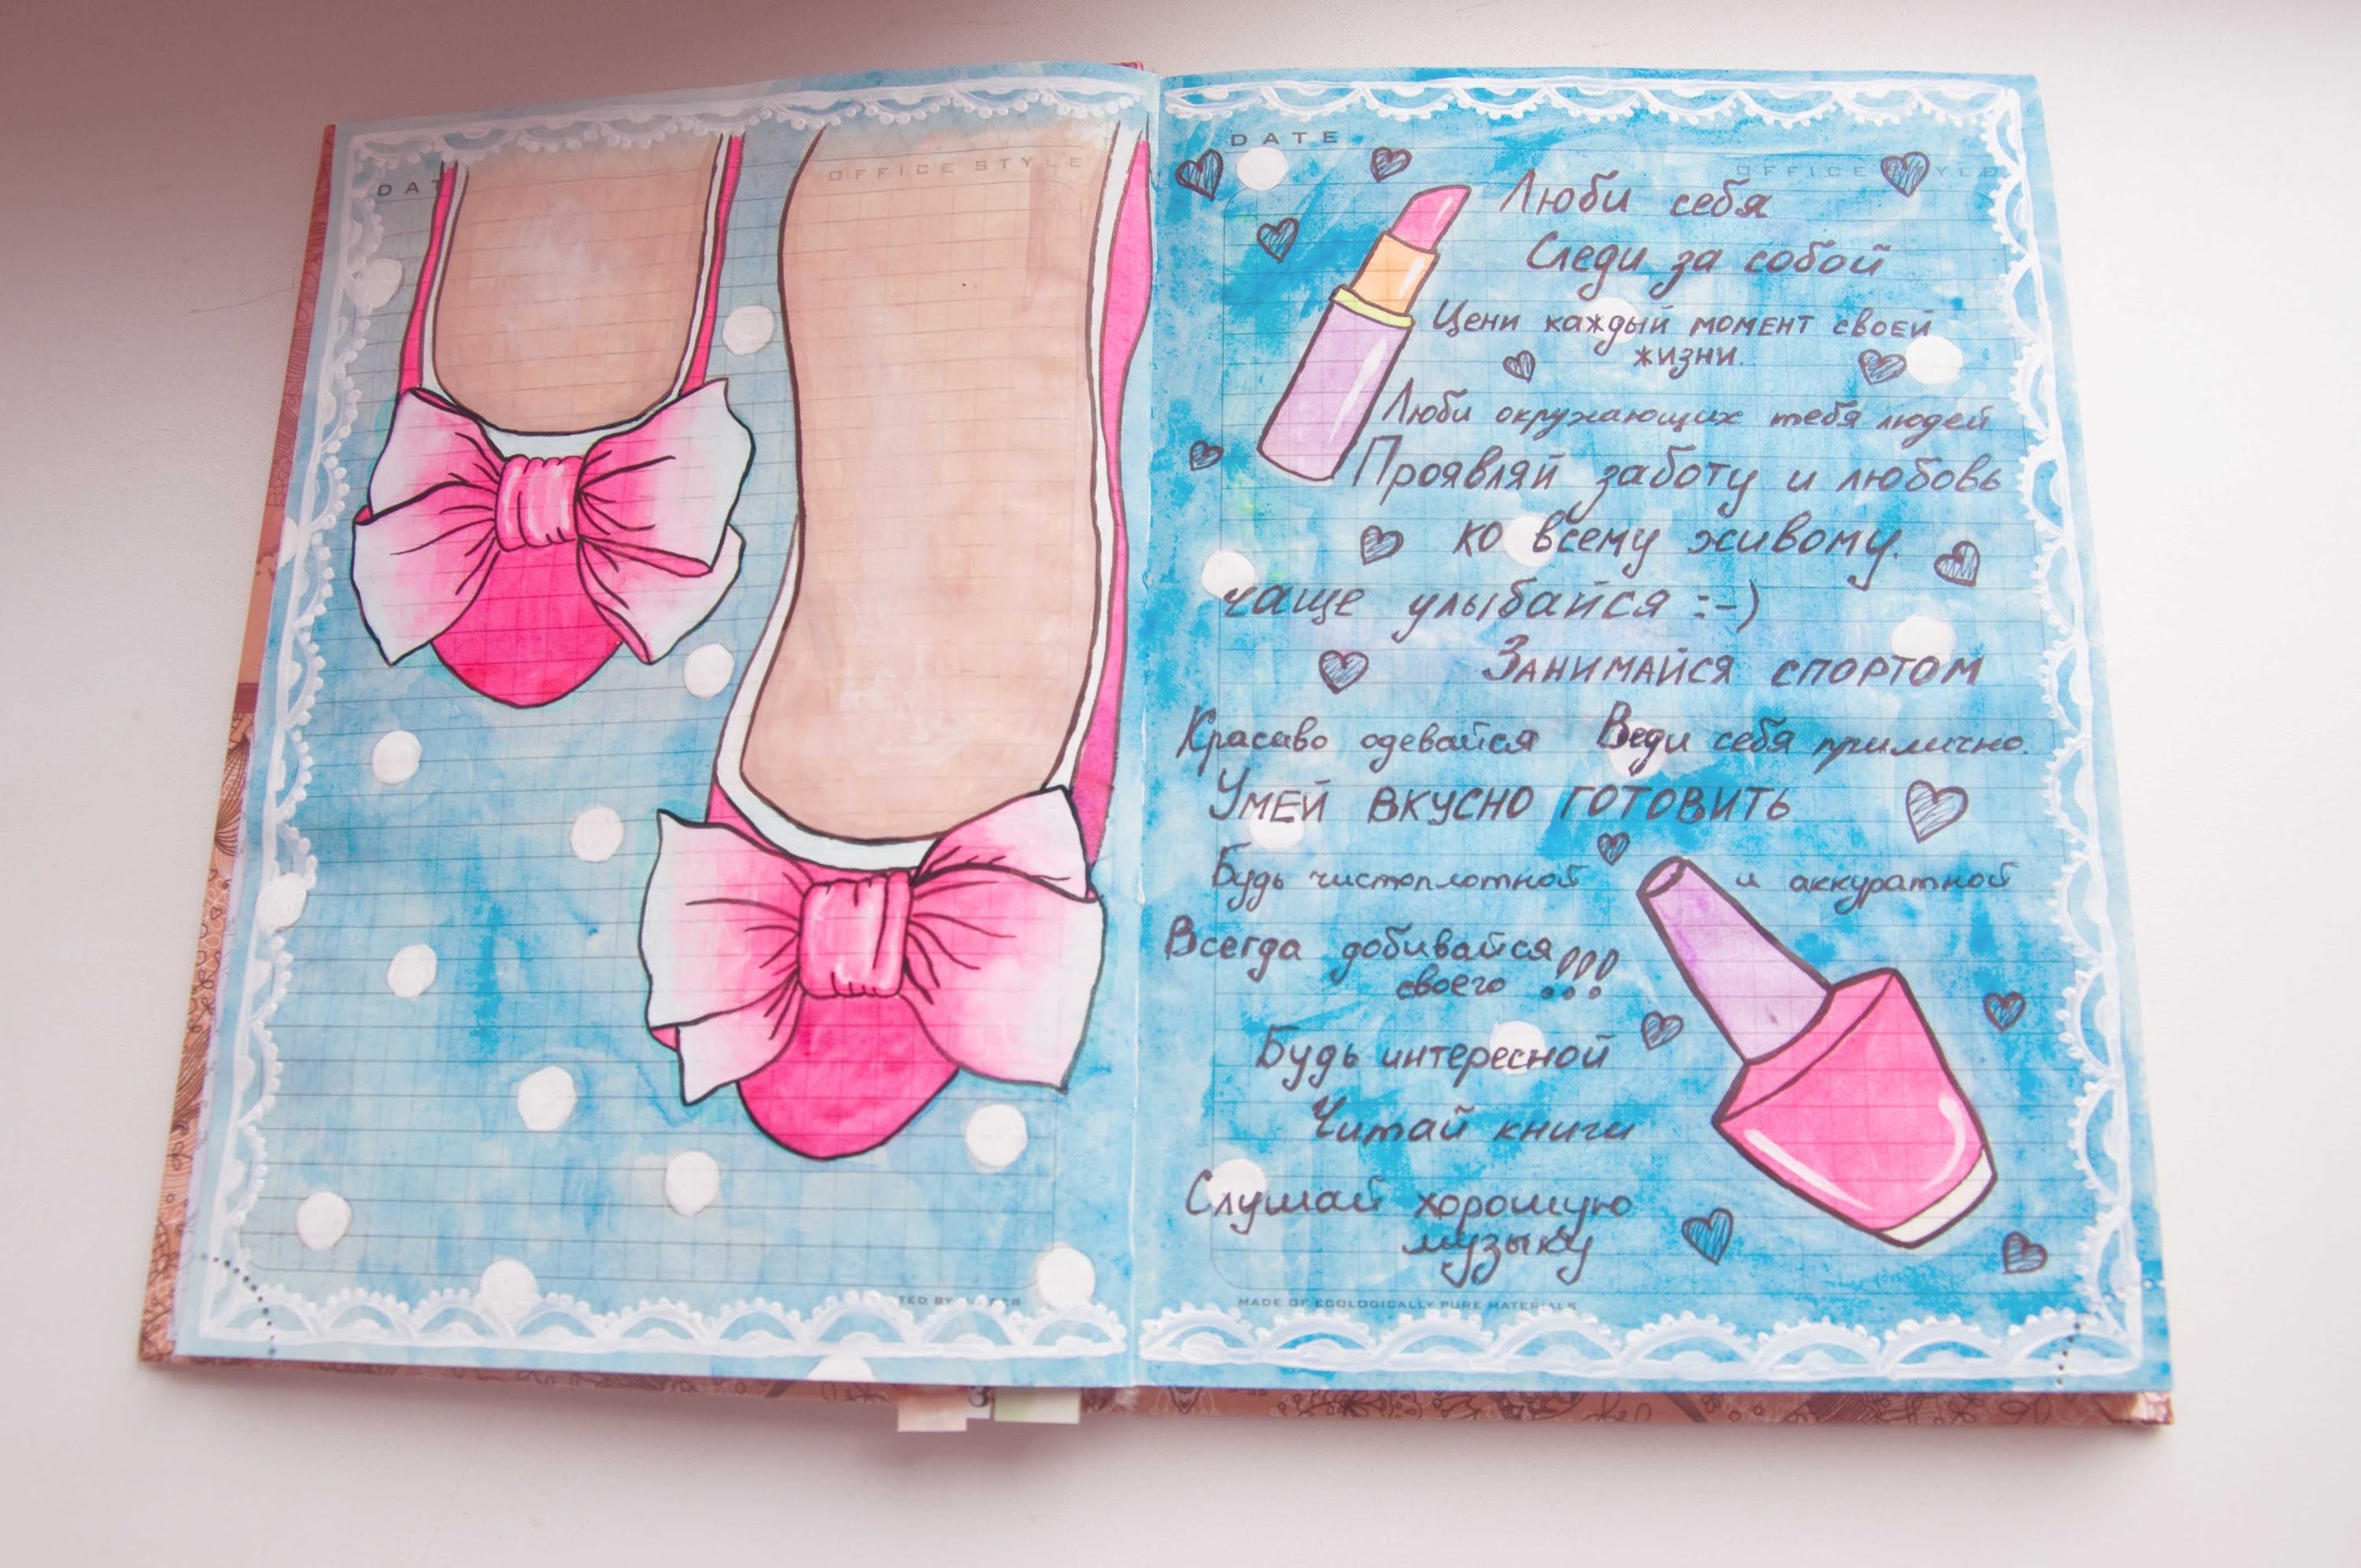 DAT
OFFICE STYLE
TED BY
DATE
OFFICE
Люби себя
Следи за собой
Цени каждый момент своей
жизни.
Люби окружающих тебя людей
Проявляй заботу и любовь
ко всему живому.
чаще улыбайся :-)
Занимайся спортом
Красиво одевайся Веди себя прилично.
Умей вкусно готовить
Будь чистоплотной и аккуратной
Всегда добивайся
своего !!!
Будь интересной
Читай книги
Слушай хорошую
музыку
MADE OF ECOLOGICALLY PURE MATERIALS